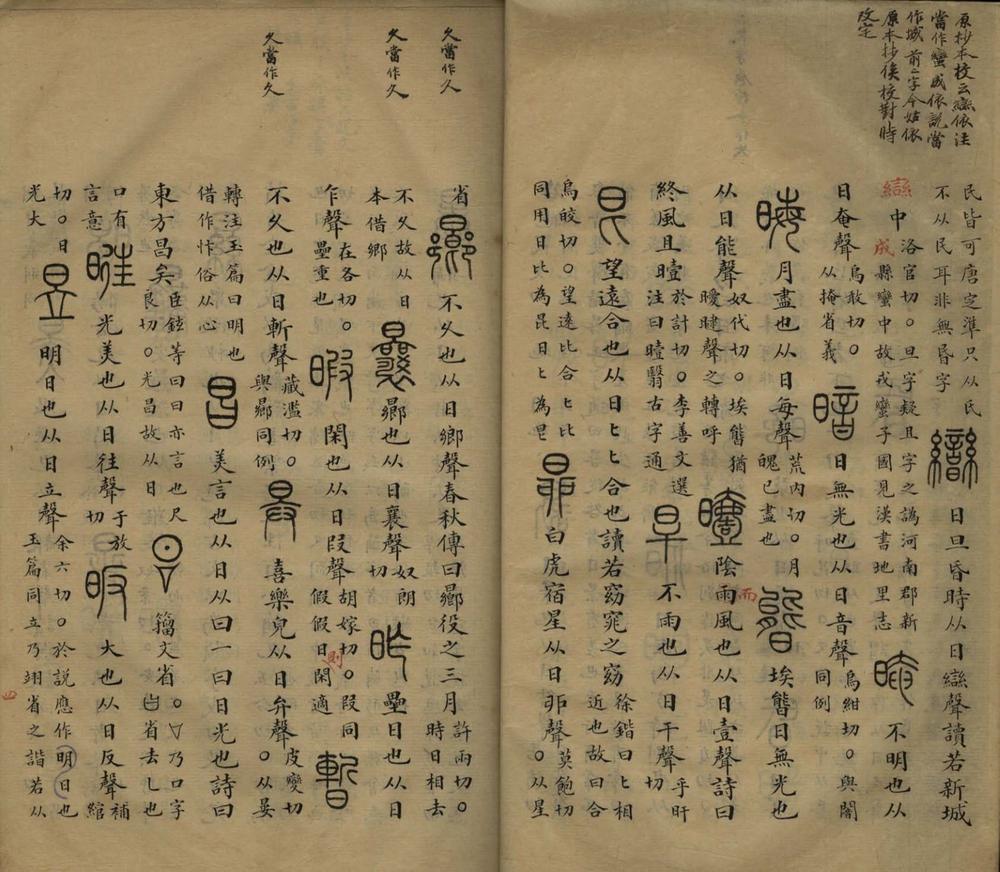 原抄本校云䜌依注
當作蠻咸依說當
作城前二字今姑依
原本抄後校對時
改定
民皆可唐定準只从氏
不从民耳非無昬字
日旦昏時从日䜌聲讀若新城
䜌中
洛官切。旦字疑且字之譌河南郡新
成縣蠻中故戎蠻子國見漢書地里志
不明也从
日奄聲
烏敢切。
从掩省義
暗
日無光也从日音聲
烏紺切。與闇
同例
晦
月盡也从日每聲
荒內切。月
魄已盡也
㫲
埃㫲日無光也
从日能聲
奴代切。埃㫲猶
曖曃聲之轉呼
曀
陰而雨風也从日壹聲詩曰
終風且曀
於計切。李善文選
注曰曀翳古字通
旱
不雨也从日干聲
乎旰
切
㫐
望遠合也从日匕匕合也讀若窈窕之窈
徐鍇曰匕相
近也故曰合
烏皎切。望遠比合匕比
同用日比為昆日匕為㫐
昴
白虎宿星从日丣聲
莫飽切
。从星
久當作久
久當作久
久當作久
省
曏
不久也从日鄉聲春秋傳曰曏役之三月
許兩切。
時日相去
不久故从日
本借鄉
曩
曏也从日襄聲
奴朗
切
昨
壘日也从日
乍聲
在各切。
壘重也
暇
閑也从日叚聲
胡嫁切。叚同
假假日則閑適
暫
不久也从日斬聲
藏濫切。
與曏同例
昪
喜樂皃从日弁聲
皮變切
。从晏
轉注玉篇曰明也
借作忭俗从心
昌
美言也从日从曰一曰日光也詩曰
東方昌矣
臣鉉等曰曰亦言也尺
良切。光昌故从日
籀文省
。乃口字
省去乚也
口有
言意
暀
光美也从日往聲
于放
切
昄
大也从日反聲
補
綰
切。日
光大
昱
明日也从日立聲
余六切。於說應作明日也
玉篇同立乃翊省之諧若从
四